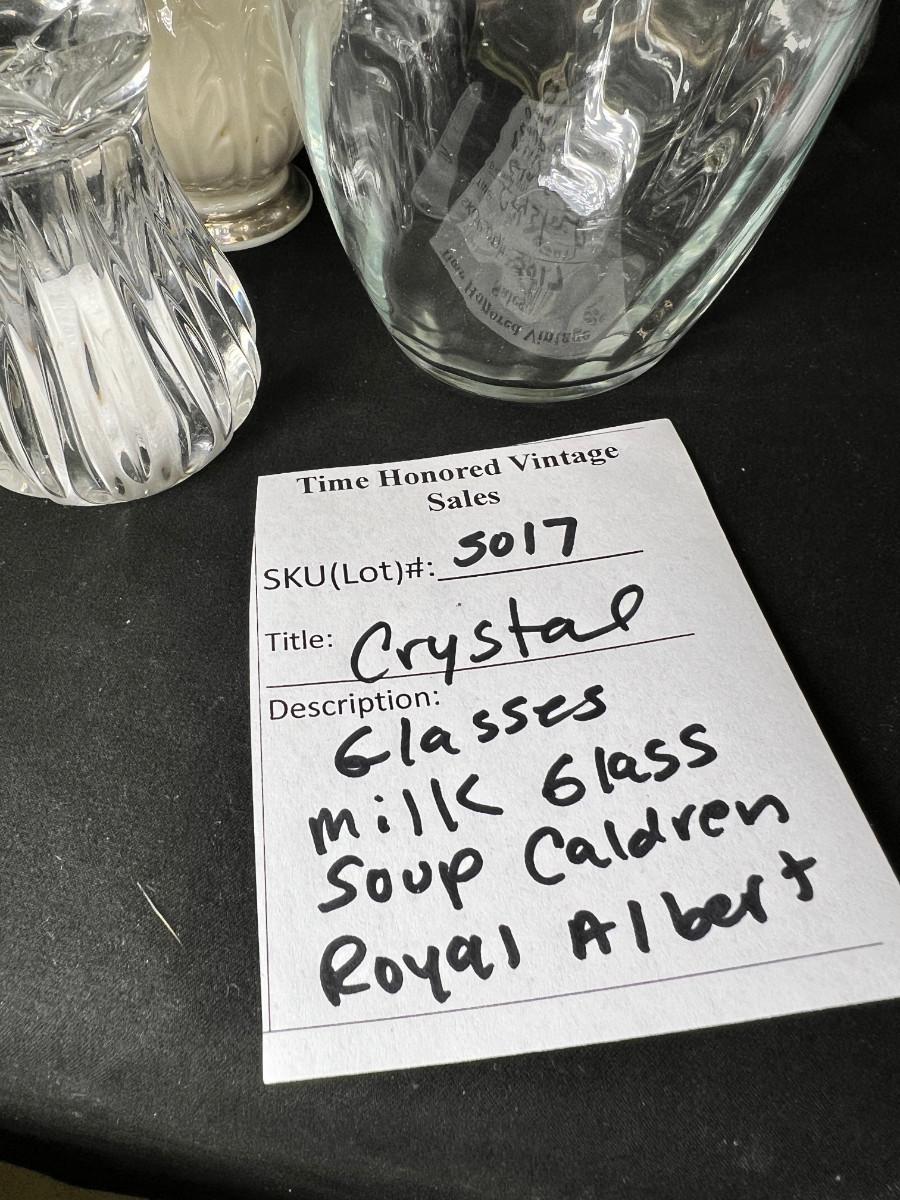 Time Honored Vintage
Sales
SKU(Lot)#: 5017
Title: Crystal
Description:
Glasses
milk Glass
Soup Caldren
Royal Albert